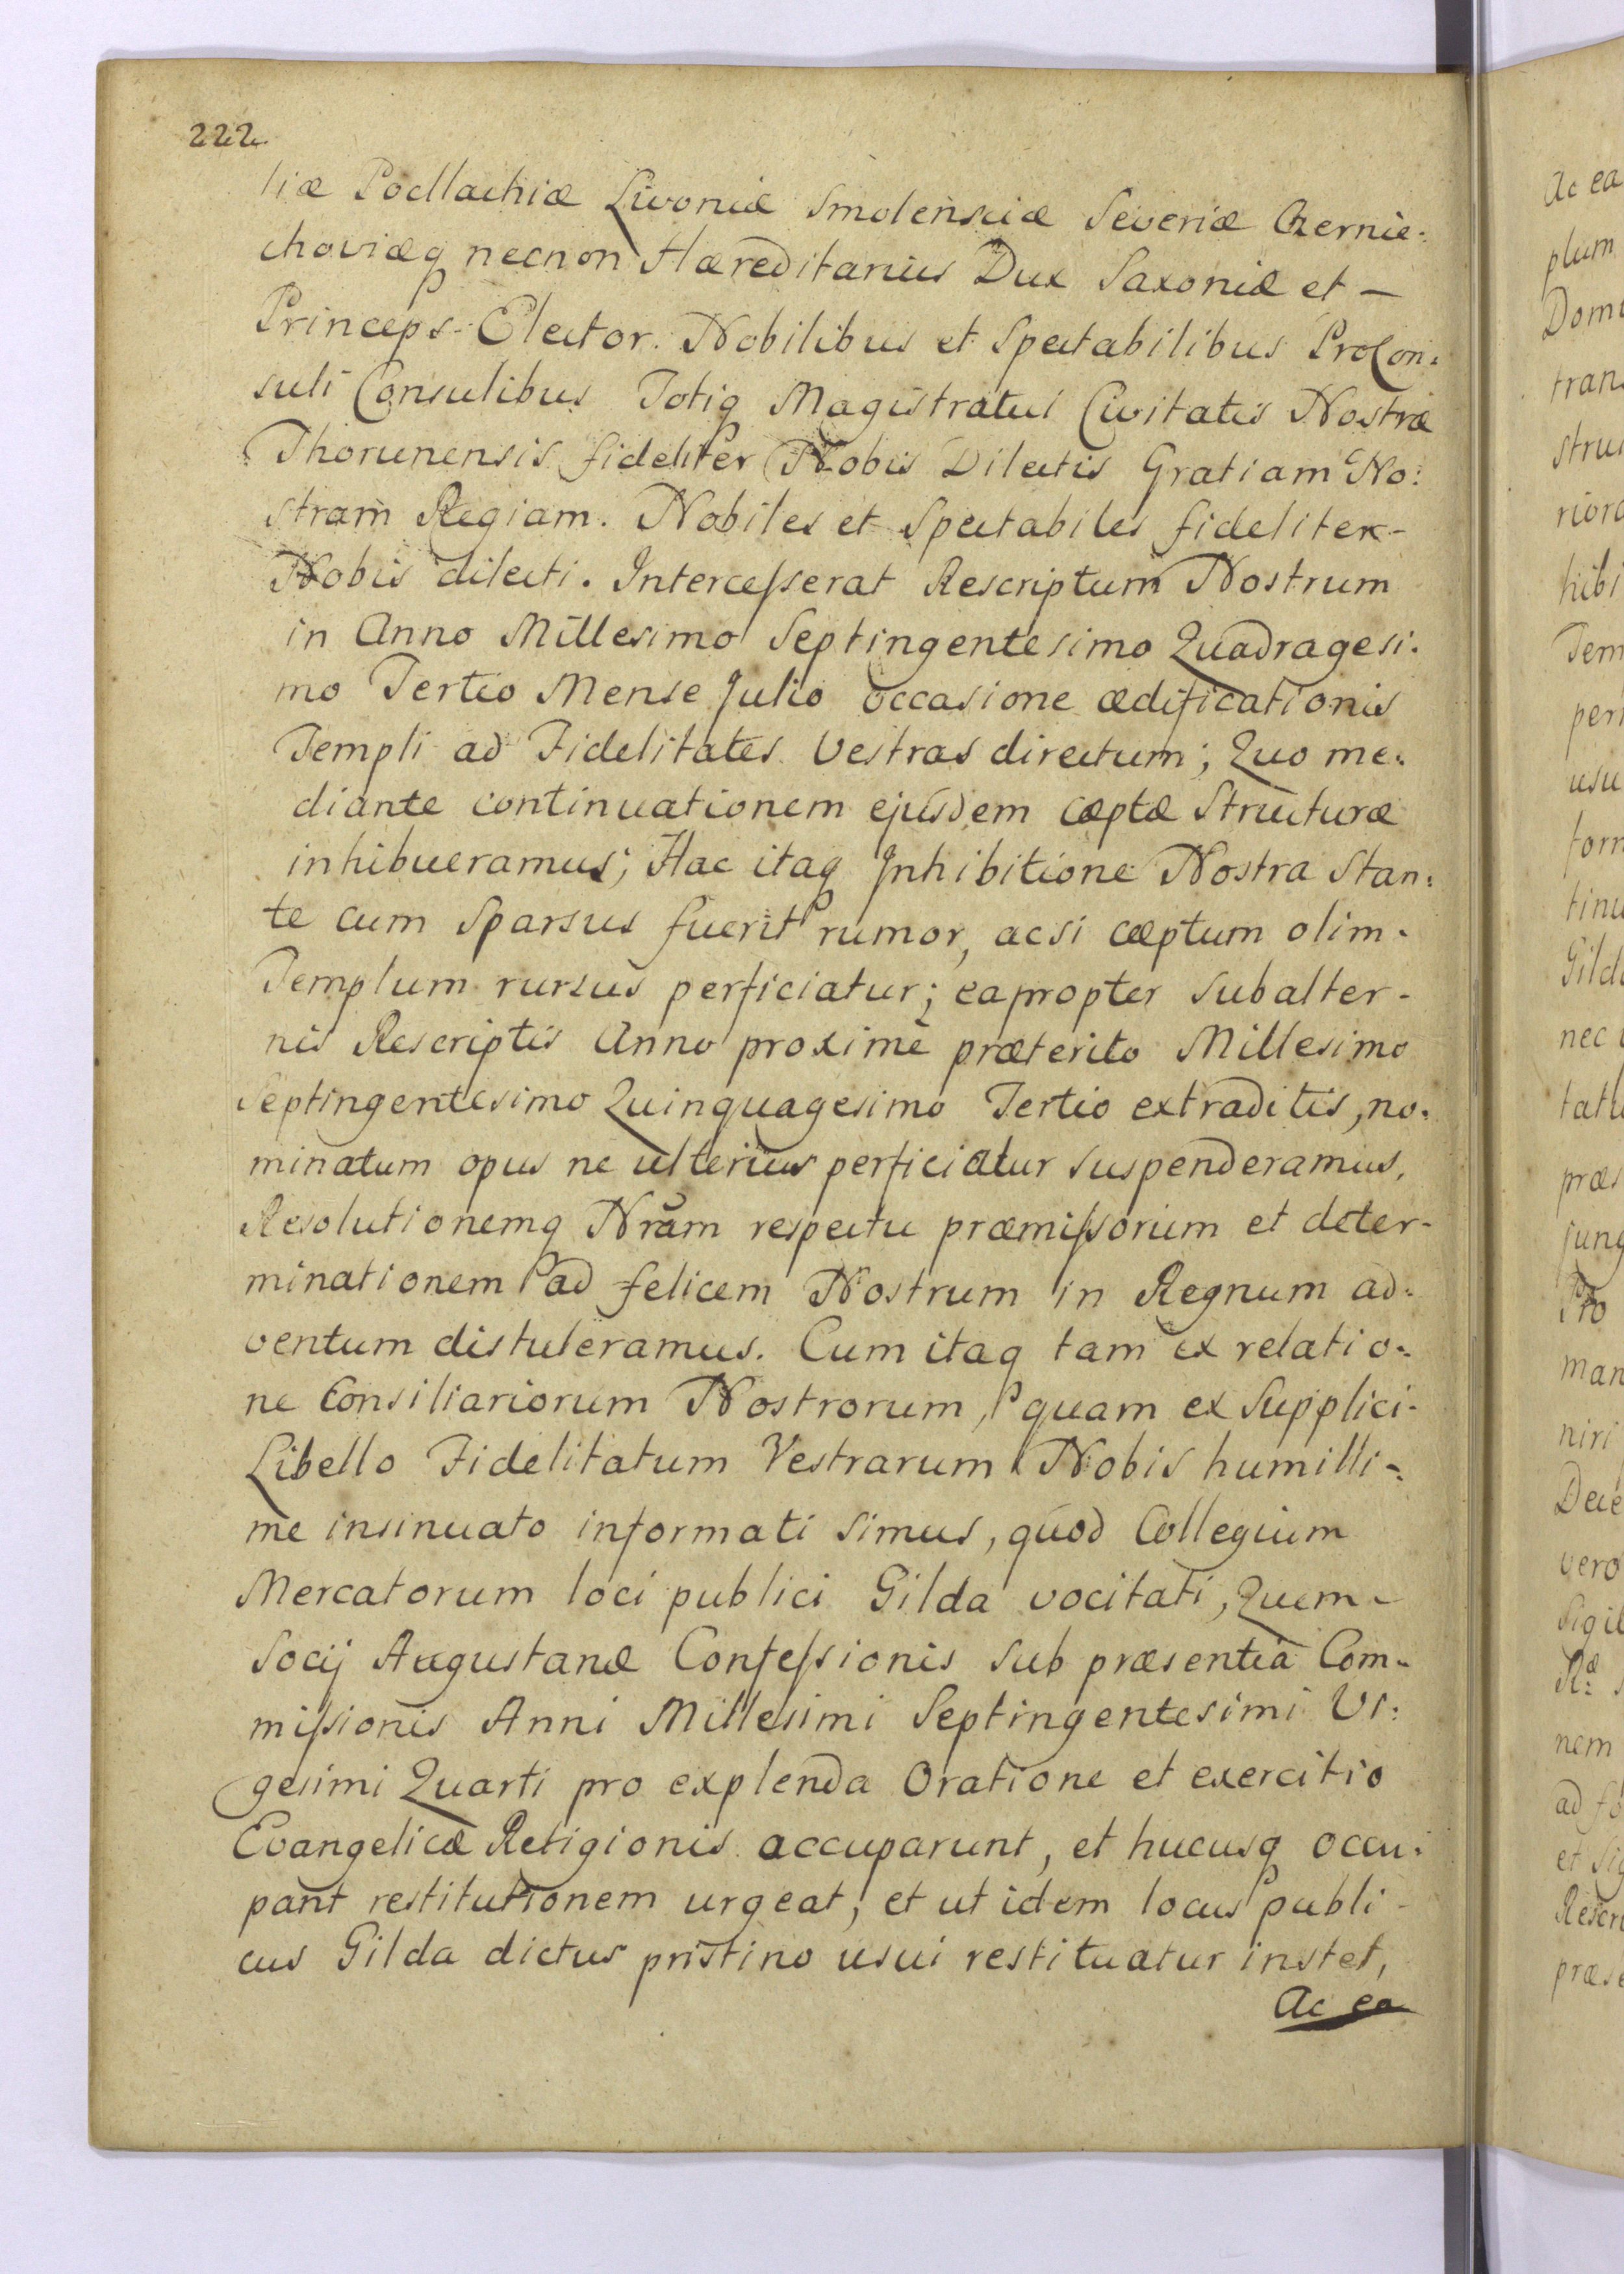 222.
liæ Podlachiæ Livoniæ Smolensciæ Severiæ Czernie-
choviæq necnon Hæreditarius Dux Saxoniæ et –
Princeps-Elector. Nobilibus et Spectabilibus ProCon-
suli Consulibus Totiq Magistratui Civitatis Nostræ
Thorunensis fideliter Nobis Dilectis Gratiam No-
stram Regiam. Nobiles et Spectabiles fideliter-
Nobis dilecti. Intercesserat Rescriptum Nostrum
in Anno Millesimo Septingentesimo Quadragesi-
mo Tertio Mense Julio occasione ædificationis
Templi ad Fidelitates Vestras directum; Quo me-
diante continuationem ejusdem cæptæ Structuræ
inhibueramus; Hac itaq Inhibitione Nostra Stan-
te cum Sparsus fuerit rumor, acsi cæptum olim-
Templum rursus perficiatur; eapropter Subalter-
nis Rescriptis Anno proximè præterito Millesimo
Septingentesimo Quinquagesimo Tertio extraditis, no-
minatum opus ne ulterius perficiatur suspenderamus,
Resolutionemq Nram respectu præmissorum et deter-
minationem ad felicem Nostrum in Regnum ad-
ventum distuleramus. Cum itaq tam ex relatio-
ne Consiliariorum Nostrorum, quam ex Supplici-
Libello Fidelitatum Vestrarum Nobis humilli-
me insinuato informati simus, quod Collegium
Mercatorum loci publici Gilda vocitati, Quem-
Socij Augustanæ Confessionis sub præsentia Com-
missionis Anni Millesimi Septingentesimi Vi-
gesimi Quarti pro explenda Oratione et exercitio
Evangelicæ Religionis accuparunt, et hucusq occu-
pant restitutionem urgeat, et ut idem locus publi-
cus Gilda dictus pristino usui restituatur instet,
Ac ea
Ac ea
plum